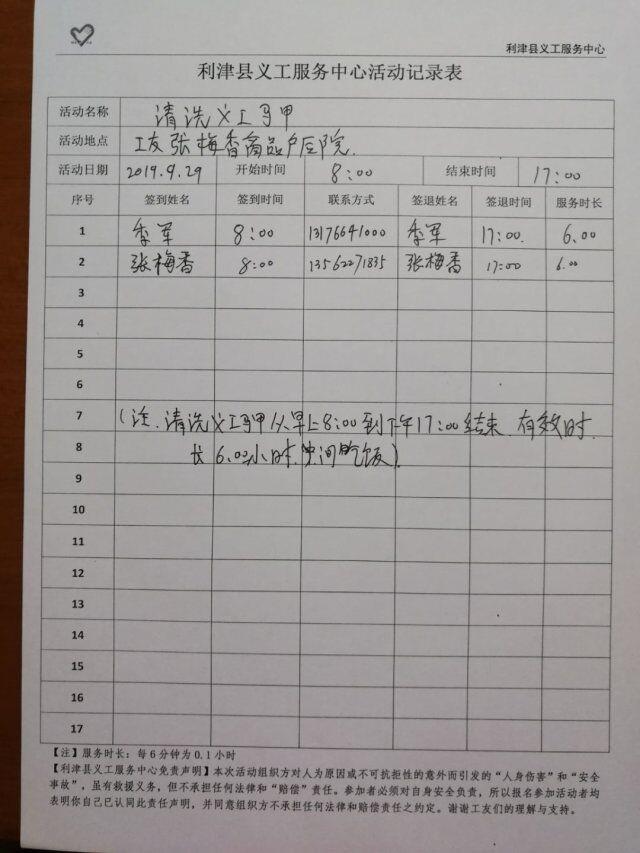 利津县义工服务中心
利津县义工服务中心活动记录表
活动名称 清洗义工马甲
活动地点 工友张梅香商品户后院.
活动日期 2019.9.29 开始时间 8:00 结束时间 17:00
序号 签到姓名 签到时间 联系方式 签退姓名 签退时间 服务时长
1 季军 8:00 13176641000 季军 17:00. 6.00
2 张梅香 8:00 13562271835 张梅香 17:00 6.00
3
4
5
6
7 (注.清洗义工马甲从早上8:00到下午17:00结束.有效时.
8 长6.00小时.中间吃饭).
9
10
11
12
13
14
15
16
17
【注】服务时长：每6分钟为0.1小时
【利津县义工服务中心免责声明】本次活动组织方对人为原因或不可抗拒性的意外而引发的“人身伤害”和“安全
事故”，虽有救援义务，但不承担任何法律和“赔偿”责任。参加者必须对自身安全负责，所以报名参加活动者均
表明你自己已认同此责任声明，并同意组织方不承担任何法律和赔偿责任之约定。谢谢工友们的理解与支持。